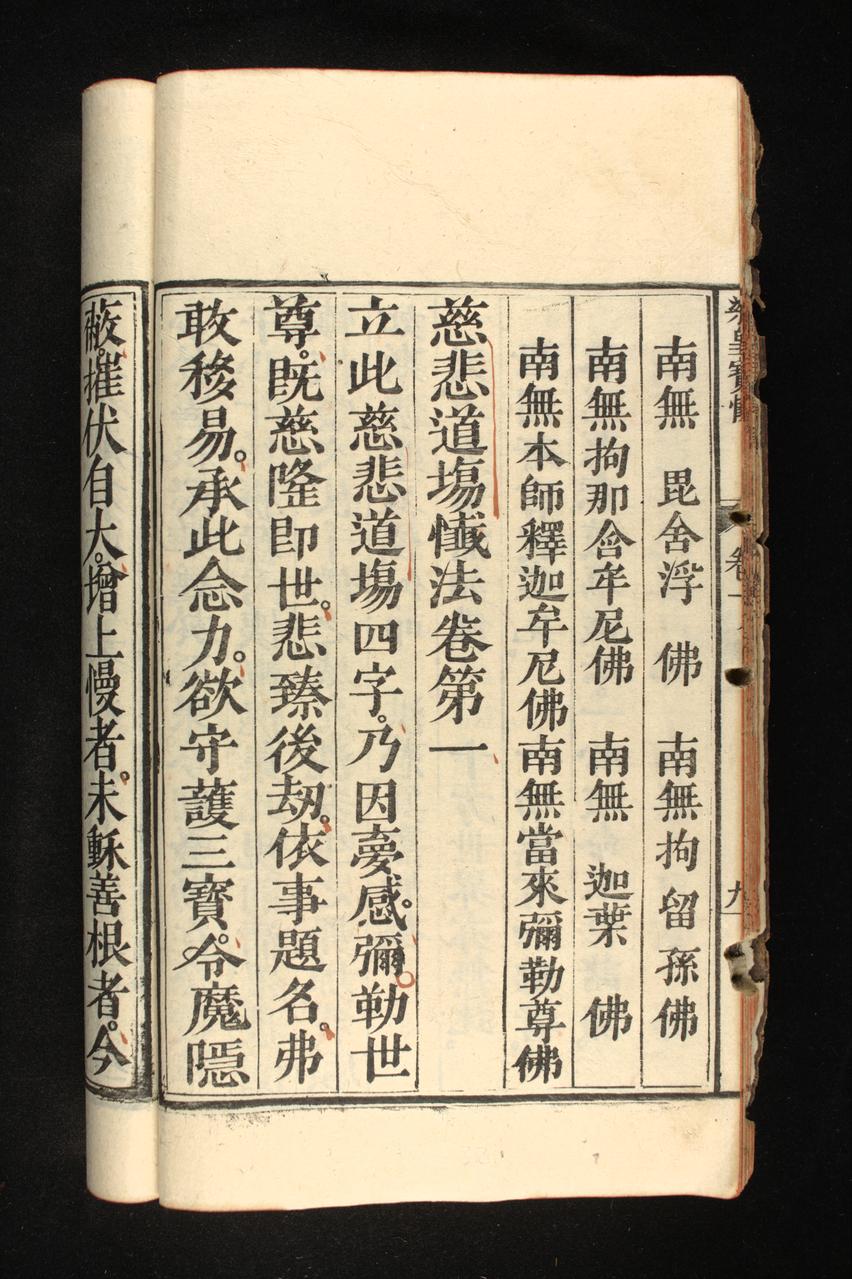 梁皇寶懺 卷一 九
南無 毘舍浮 佛 南無拘留孫佛
南無拘那含牟尼佛 南無 迦葉 佛
南無本師釋迦牟尼佛南無當來彌勒尊佛
慈悲道塲懴法卷第一
立此慈悲道塲四字。乃因夢感。彌勒世
尊。旣慈隆卽世。悲臻後刼。依事題名。弗
敢移易。承此念力。欲守護三寶。令魔隱
蔽。摧伏自大。增上慢者。未穌善根者。今